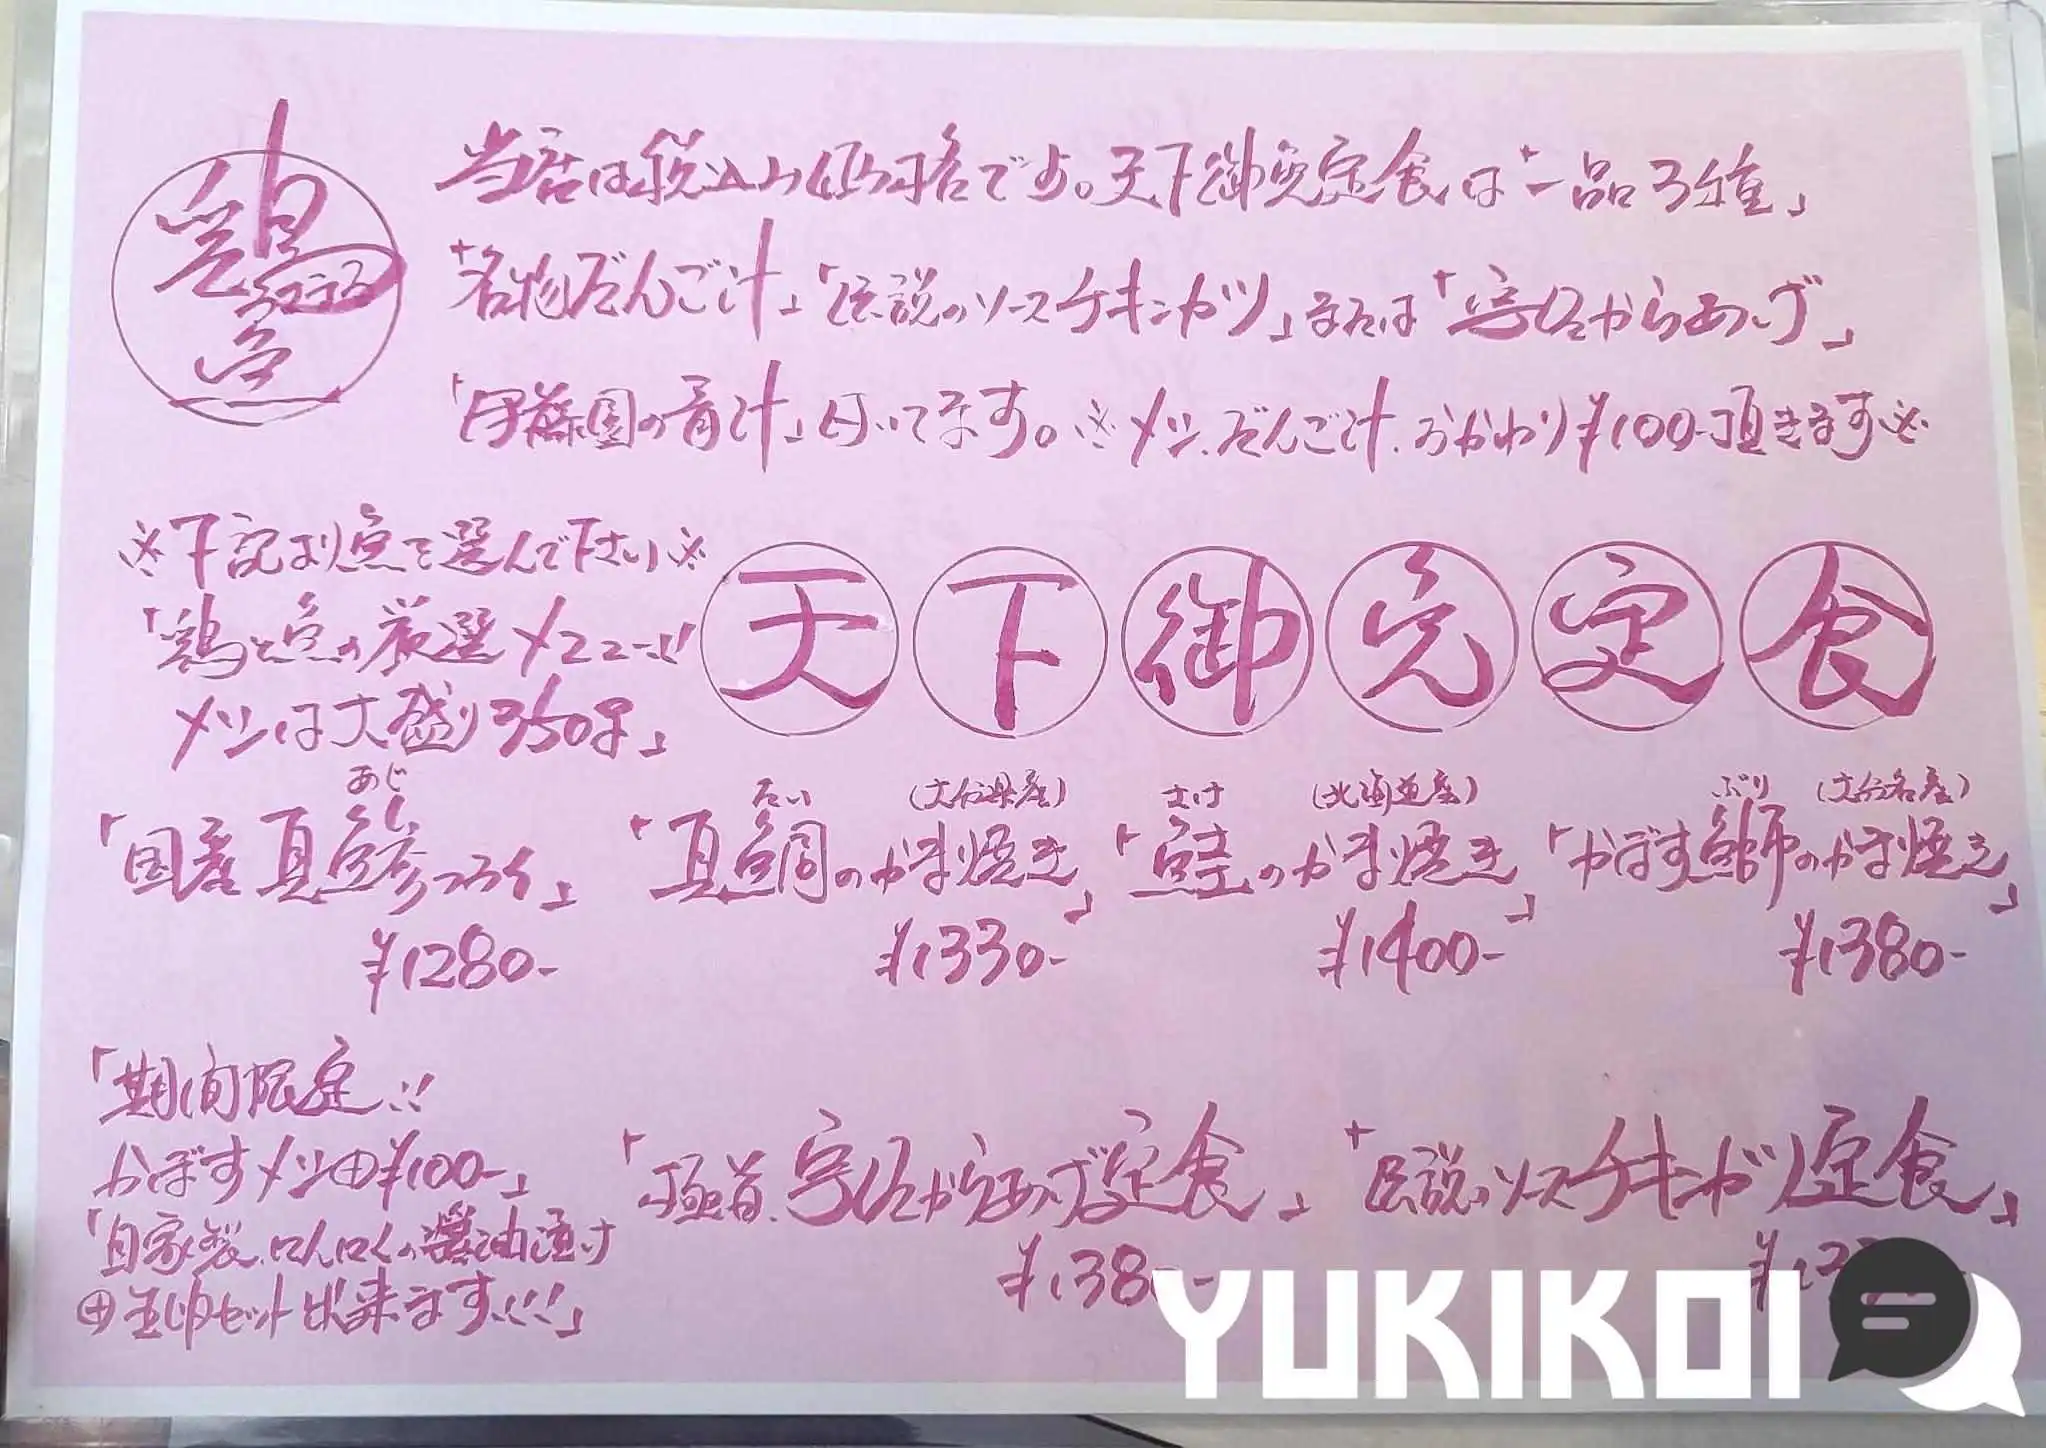 鶏
プラテーロ
魚
当店は税込み価格です。天下御免定食は「一品3種」
「名物だんご汁」「伝説のソースチキンカツ」または「宇佐からあげ」
「伊藤園の青汁」付いてます。※メシ、だんご汁、おかわり¥100-頂きます※
※下記より魚を選んで下さい※
「鶏と魚の厳選メニュー!!
メシは大盛り350g」
天下御免定食
あじ
「国産真鯵フライ」
¥1280-
たい (大分県産)
「真鯛のかま焼き」
¥1330-
さけ (北海道産)
「鮭のかま焼き」
¥1400-
ぶり (大分名産)
「かぼす鰤のかま焼き」
¥1380-
「期間限定!!
かぼすメシ⊕¥100-」
「自家製、にんにくの醤油漬け
⊕玉子セット出来ます!!!」
「極旨、宇佐からあげ定食」
¥138
「伝説のソースチキンカツ定食」
YUKIKOI